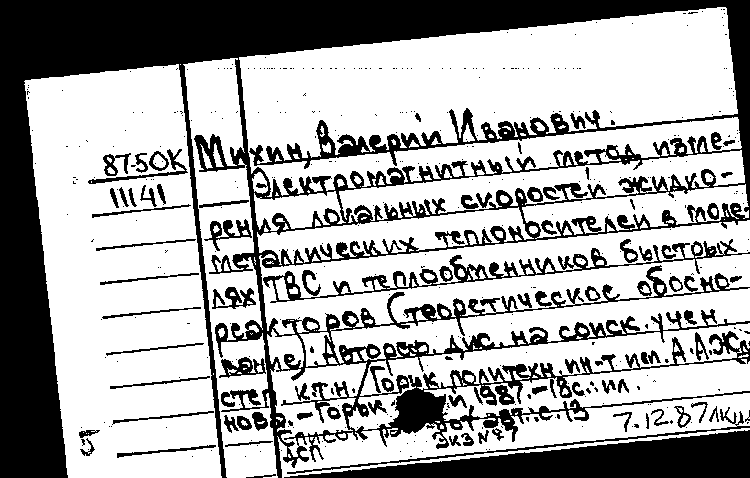 87-5OK
11141
Михин, Валерий Иванович.
Электромагнитный метод изме-
рения локальных скоростей жидко-
металлических теплоносителей в моде-
лях ТВС и теплообменников быстрых
реакторов (теоретическое обосно-
вание): Автореф. дис. на соиск. учен.
степ. к.т.н. / Горьк. политехн. ин-т им. А.А.Жда
нова. - Горьк й 1987. - 18с.: ил.
Список авт.: с. 13
Экз №7
ДСП
7.12.87
5